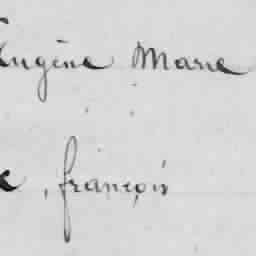 Eugène Marie
, françois